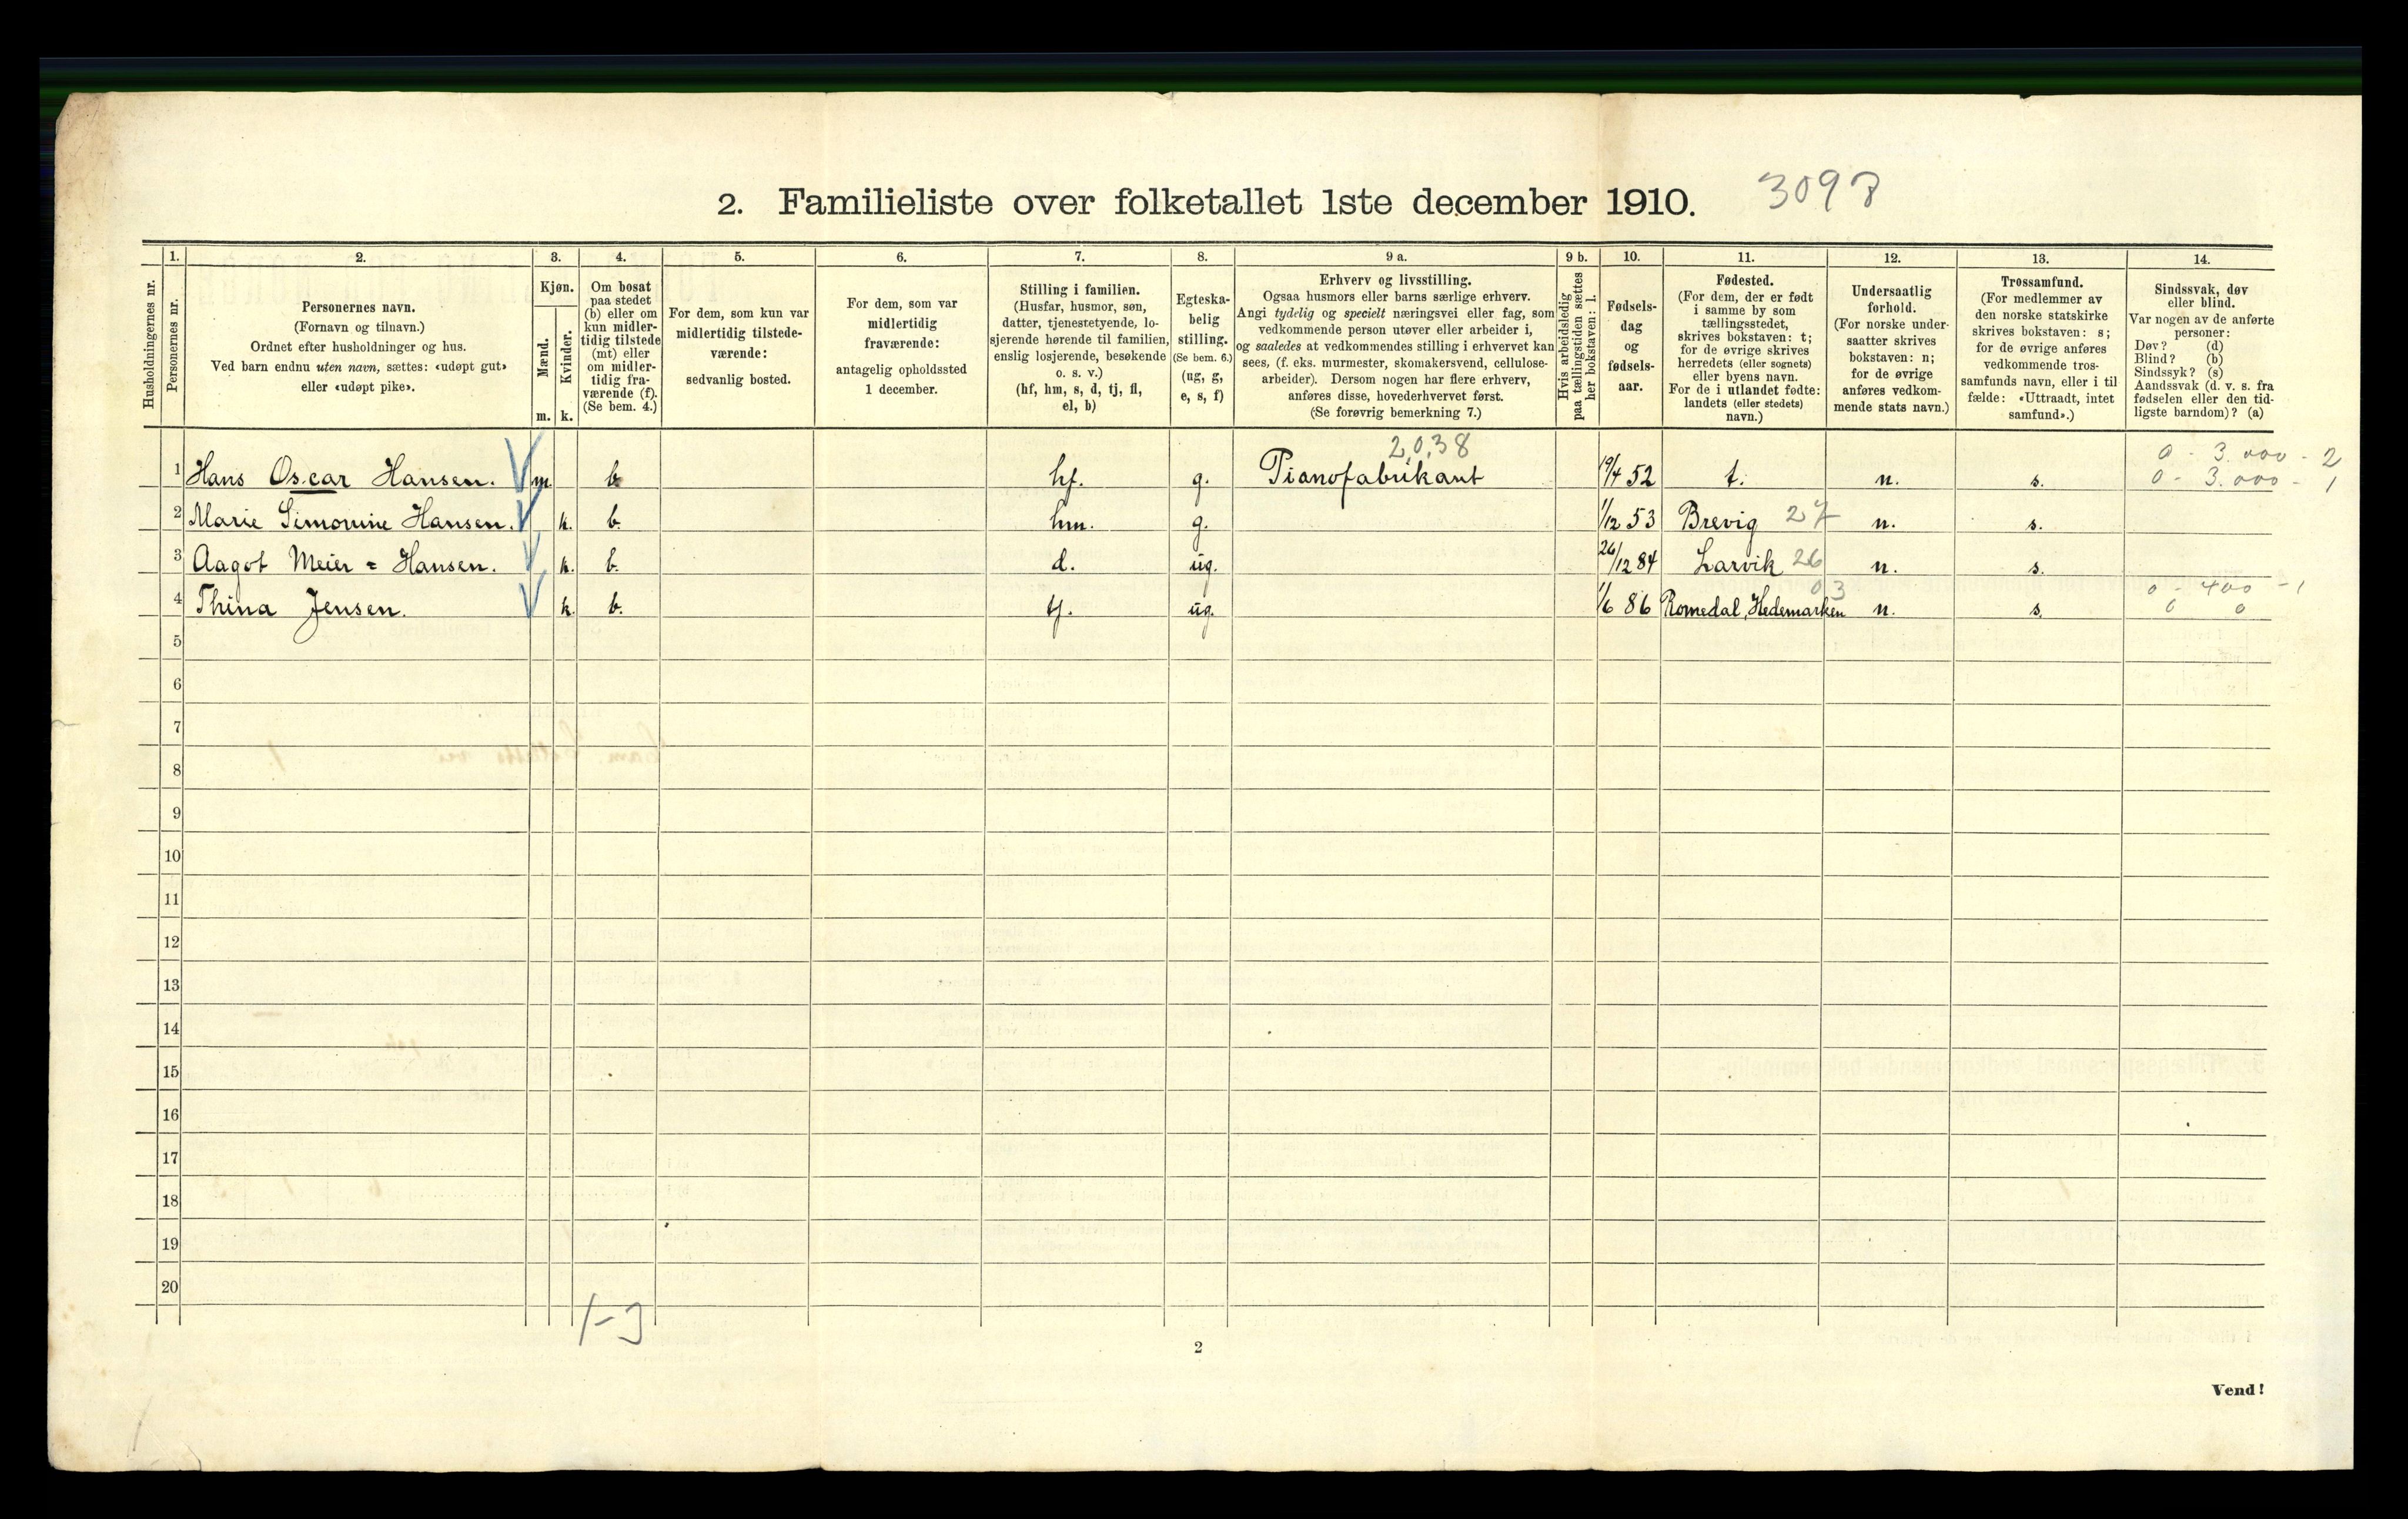 2. Familieliste over folketallet 1ste december 1910. 3098
Husholdningernes nr.
1.
Personernes nr.
2.
Personernes navn.
(Fornavn og tilnavn.)
Ordnet efter husholdninger og hus.
Ved barn endnu uten navn, sættes: «udøpt gut»
eller «udøpt pike».
3.
Kjøn.
Mænd.
Kvinder.
m. k.
4.
Om bosat
paa stedet
(b) eller om
kun midler-
tidig tilstede
(mt) eller
om midler-
tidig fra-
værende (f).
(Se bem. 4.)
5.
For dem, som kun var
midlertidig tilstede-
værende:
sedvanlig bosted.
6.
For dem, som var
midlertidig
fraværende:
antagelig opholdssted
1 december.
7.
Stilling i familien.
(Husfar, husmor, søn,
datter, tjenestetyende, lo-
sjerende hørende til familien,
enslig losjerende, besøkende
o. s. v.)
(hf, hm, s, d, tj, fl,
el, b)
8.
Egteska-
belig
stilling.
(Se bem. 6.)
(ug, g,
e, s, f)
9 a.
Erhverv og livsstilling.
Ogsaa husmors eller barns særlige erhverv.
Angi tydelig og specielt næringsvei eller fag, som
vedkommende person utøver eller arbeider i,
og saaledes at vedkommendes stilling i erhvervet kan
sees, (f. eks. murmester, skomakersvend, cellulose-
arbeider). Dersom nogen har flere erhverv,
anføres disse, hovederhvervet først.
(Se forøvrig bemerkning 7.)
9 b.
Hvis arbeidsledig
paa tællingstiden sættes
her bokstaven: l.
10.
Fødsels-
dag
og
fødsels-
aar.
11.
Fødested.
(For dem, der er født
i samme by som
tællingsstedet,
skrives bokstaven: t;
for de øvrige skrives
herredets (eller sognets)
eller byens navn.
For de i utlandet fødte:
landets (eller stedets)
navn.)
12.
Undersaatlig
forhold.
(For norske under-
saatter skrives
bokstaven: n;
for de øvrige
anføres vedkom-
mende stats navn.)
13.
Trossamfund.
(For medlemmer av
den norske statskirke
skrives bokstaven: s;
for de øvrige anføres
vedkommende tros-
samfunds navn, eller i til
fælde: «Uttraadt, intet
samfund».)
14.
Sindssvak, døv
eller blind.
Var nogen av de anførte
personer:
Døv? (d)
Blind? (b)
Sindssyk? (s)
Aandssvak (d. v. s. fra
fødselen eller den tid-
ligste barndom)? (a)
2.0.38 0 - 3.000 - 2
1 Hans Oscar Hansen. m. b hf. g. Pianofabrikant 19/4 52 t. n. s. 0 - 3.000 - 1
2 Marie Simonine Hansen. k. b. hm. g. 1/12 53 Brevig 27 n. s.
3 Aagot Meier = Hansen. k. b. d. ug. 26/12 84 Larvik 26 n. s.
03 0 - 400 - 1
4 Thina Jensen. k. b. tj. ug. 1/6 86 Romedal, Hedemarken n. s. 0 0
5
6
7
8
9
10
11
12
13
14
15
16
17
18
19
20
1-3
2
Vend!